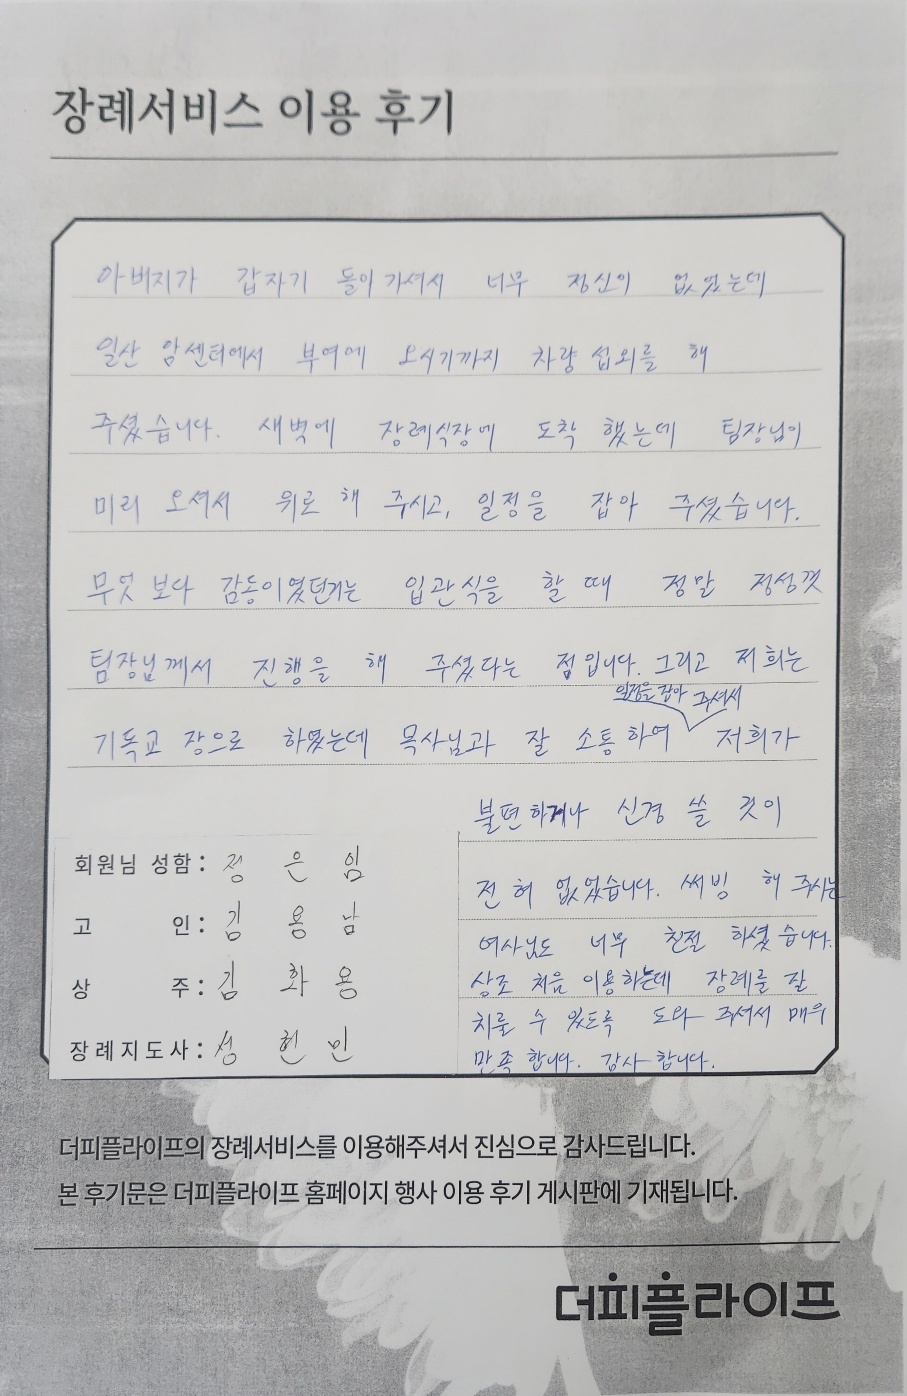 장례서비스 이용 후기
아버지가 갑자기 돌아가셔서 너무 정신이 없었는데
일산 암센터에서 부여에 오시기까지 차량 섭외를 해
주셨습니다. 새벽에 장례식장에 도착 했는데 팀장님이
미리 오셔서 위로 해 주시고, 일정을 잡아 주셨습니다.
무엇 보다 감동이였던거는 입관식을 할 때 정말 정성껏
팀장님께서 진행을 해 주셨다는 점입니다. 그리고 저희는
기독교 장으로 하였는데 목사님과 잘 소통하여 일정을 잡아 주셔서 저희가
불편하거나 신경 쓸 것이
전혀 없었습니다. 써빙 해 주시는
여사님도 너무 친절 하셨습니다.
상조 처음 이용하는데 장례를 잘
치룰 수 있도록 도와 주셔서 매우
만족 합니다. 감사 합니다.
회원님 성함: 정은임
고 인: 김용남
상 주: 김화용
장례지도사: 성현민
더피플라이프의 장례서비스를 이용해주셔서 진심으로 감사드립니다.
본 후기문은 더피플라이프 홈페이지 행사 이용 후기 게시판에 기재됩니다.
더피플라이프